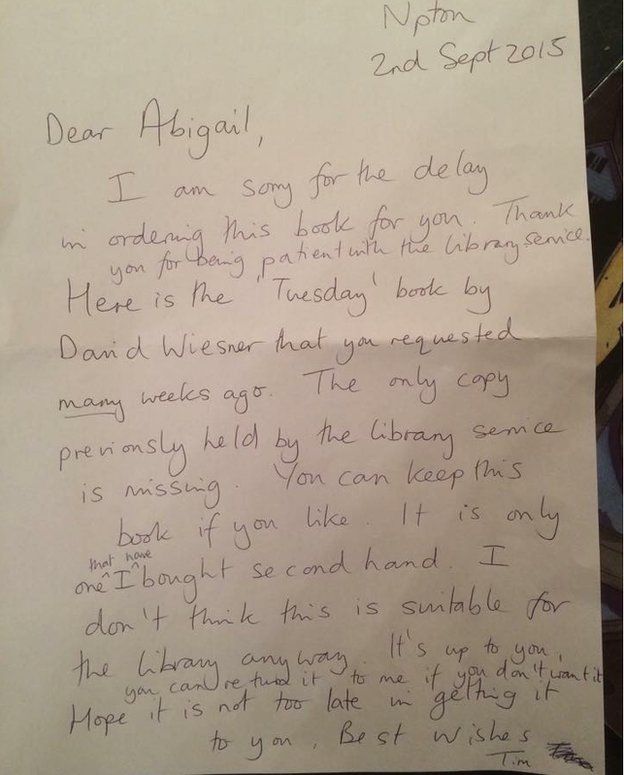 Npton
2nd Sept 2015
Dear Abigail,
I am sorry for the delay
in ordering this book for you. Thank
you for being patient with the library service.
Here is the 'Tuesday' book by
David Wiesner that you requested
many weeks ago. The only copy
previously held by the library service
is missing. You can keep this
book if you like. It is only
that have
one ^ I ^ bought second hand. I
don't think this is suitable for
the library anyway. It's up to you,
you can return it to me if you don't want it
Hope it is not too late in getting it
to you, Best wishes
Tim